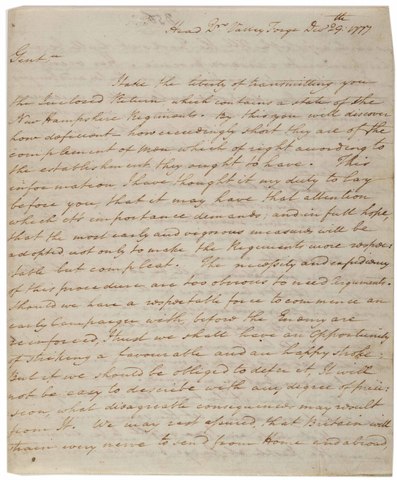 Head Qrs Valley Forge Decr 29th 1777
Gentn
I take the liberty of transmitting you
the Inclosed Return which contains a state of the
New Hampshire Regiments. By this you will discover
how deficient how exceedingly short they are of the
complement of Men which of right according to
the establishment they ought to have. This
information I have thought it my duty to lay
before you that it may have that attention
which its importance demands, and in full hope,
that the most early and vigorous measures will be
adopted not only to make the Regiments more respec-
table but compleat. The necessity and expediency
of this procedure are too obvious to need arguments.
Should we have a respectable force to commence an
early Campaign with before the Enemy are
reinforced, I trust we shall have an Opportunity
of striking a favourable and an happy stroke:
But if we should be obliged to defer it It will
not be easy to describe with any degree of preci-
sion, what disagreable consequences may result
from It. We may rest assured, that Britain will
strain every nerve to send from Home and abroad,